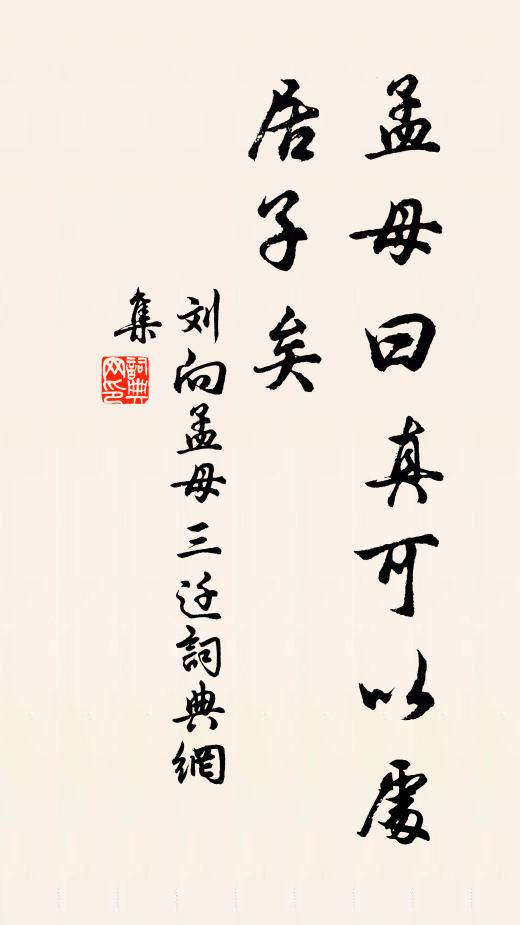 孟母曰真可以處
居子矣
刘向孟母三迁詞典網
集
詞典网印